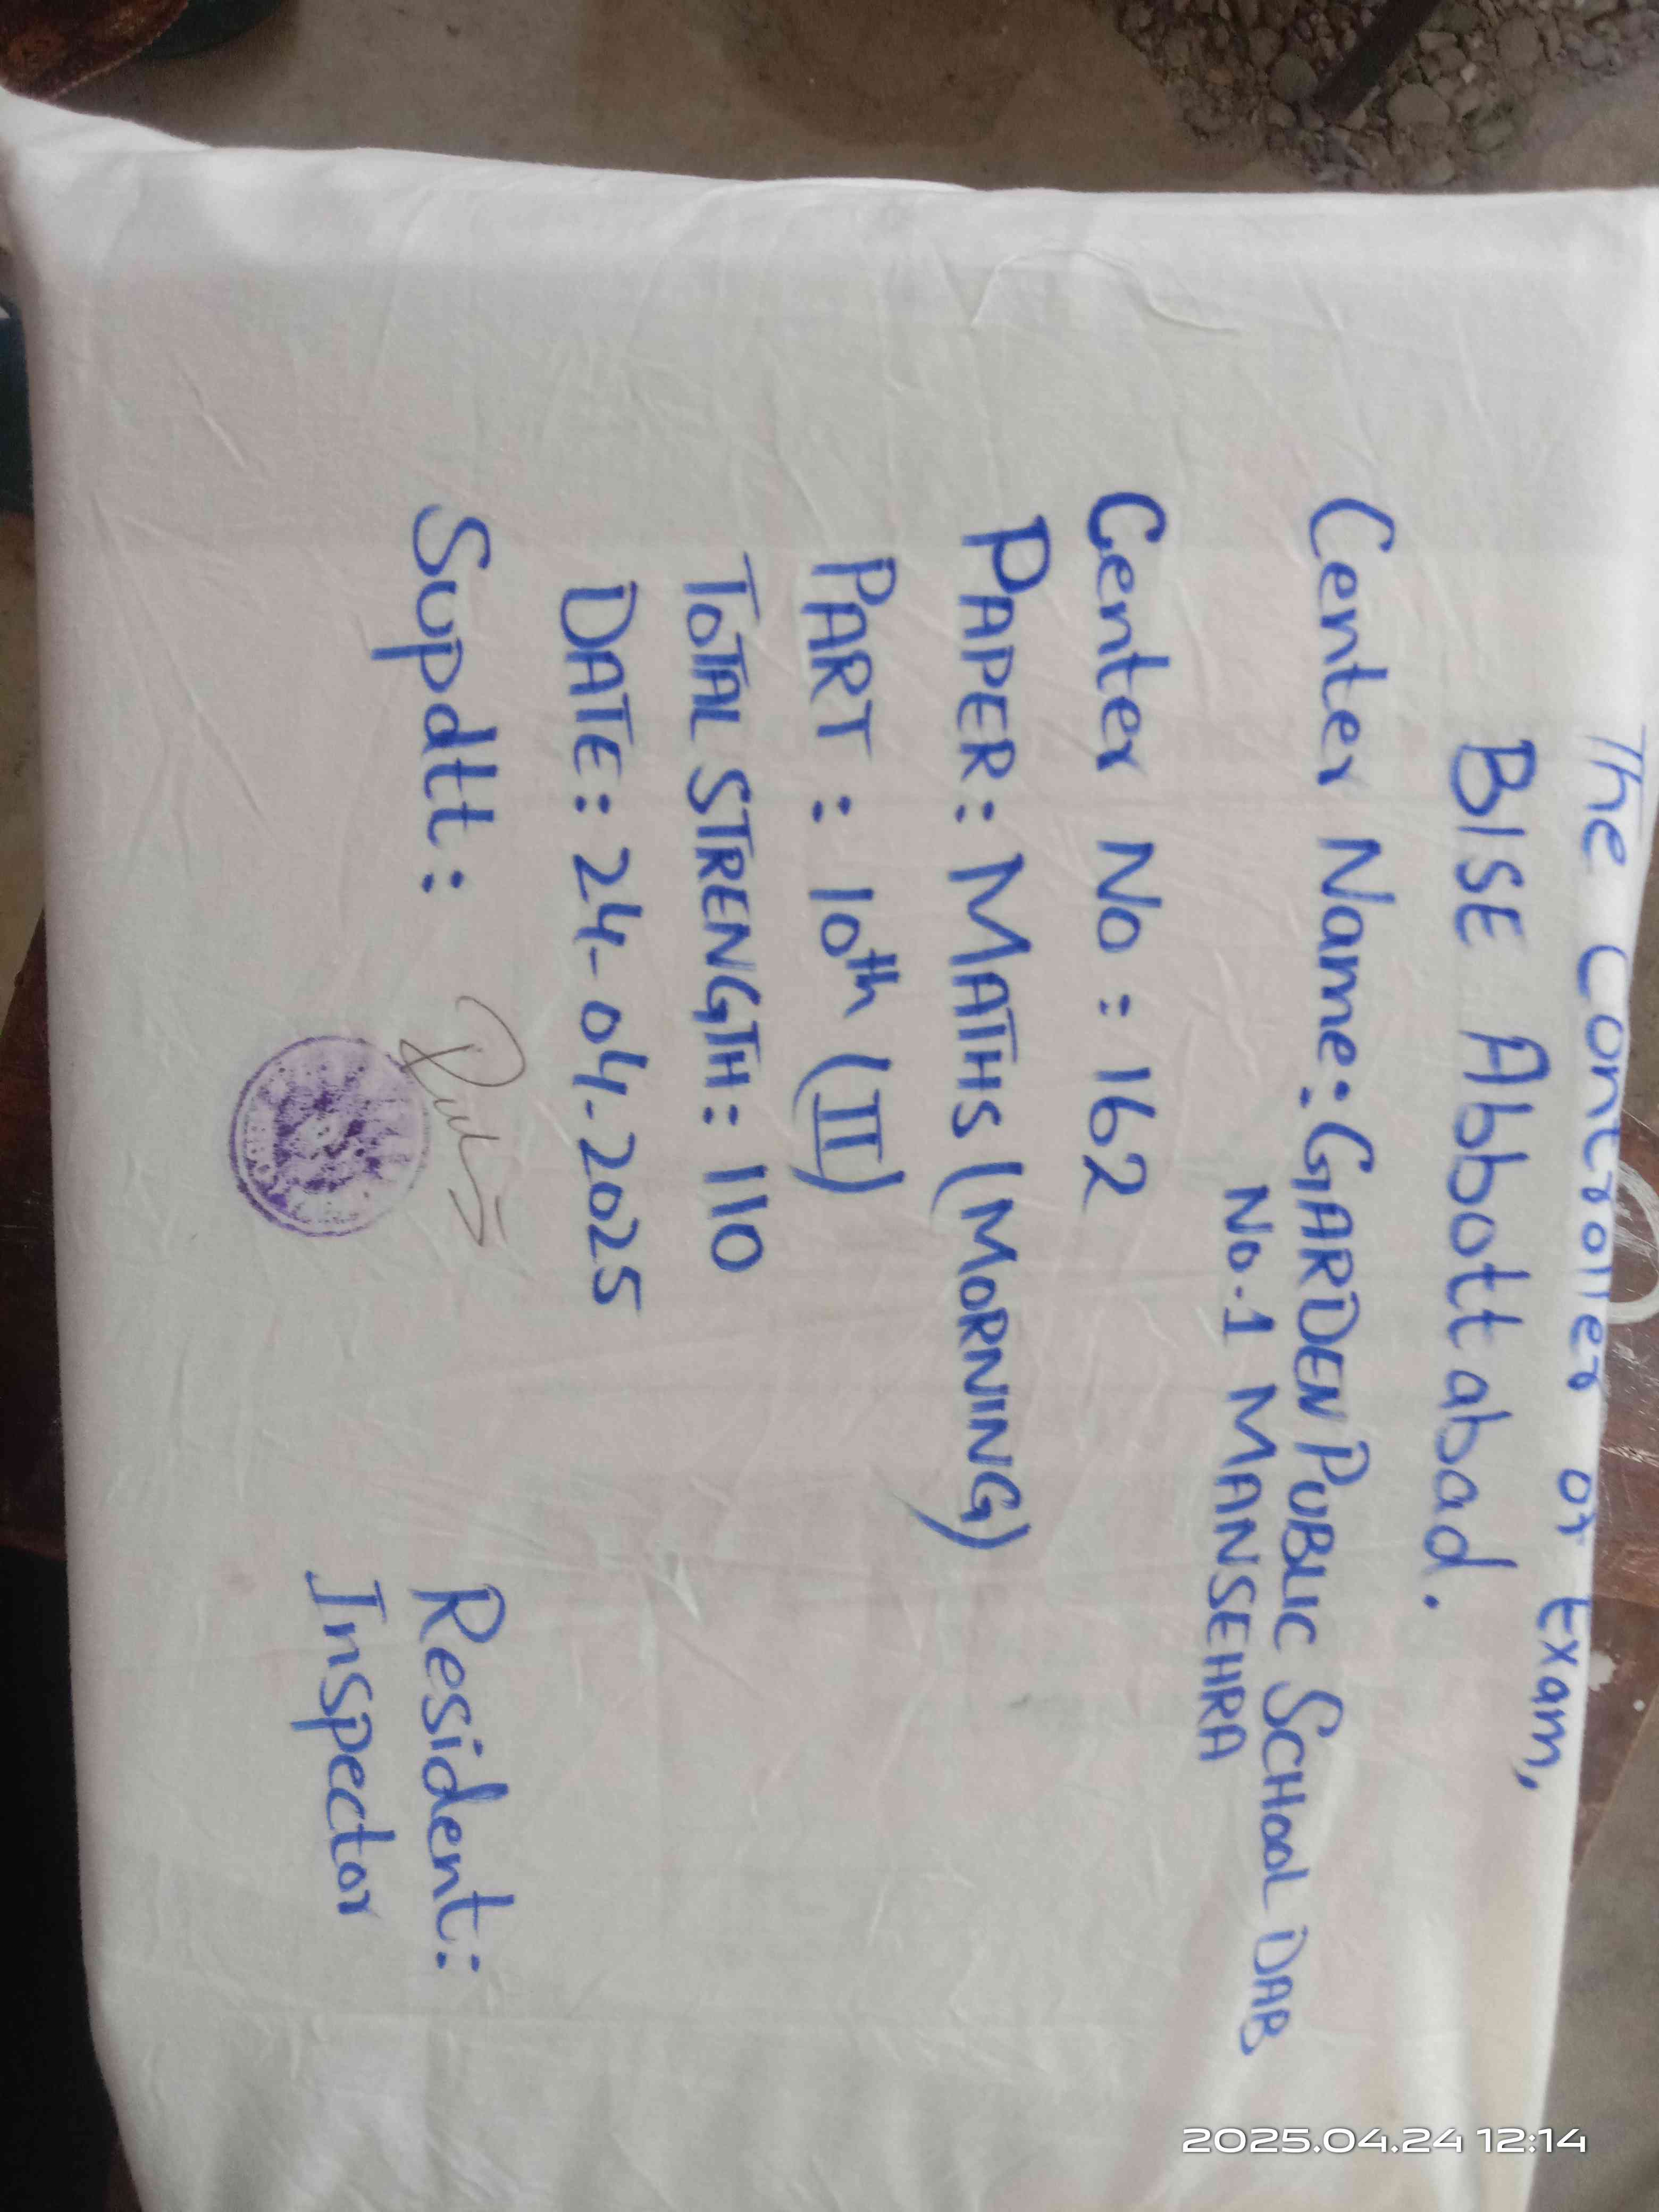 The Controller of Exam,
BISE Abbottabad.
Center Name: GARDEN PUBLIC SCHOOL DAB
No.1 MANSEHRA
Center No: 162
PAPER: MATHS (MORNING)
PART: 10th (II)
TOTAL STRENGTH: 110
DATE: 24-04.2025
Supdtt:
Resident:
Inspector
2025.04.24 12:14